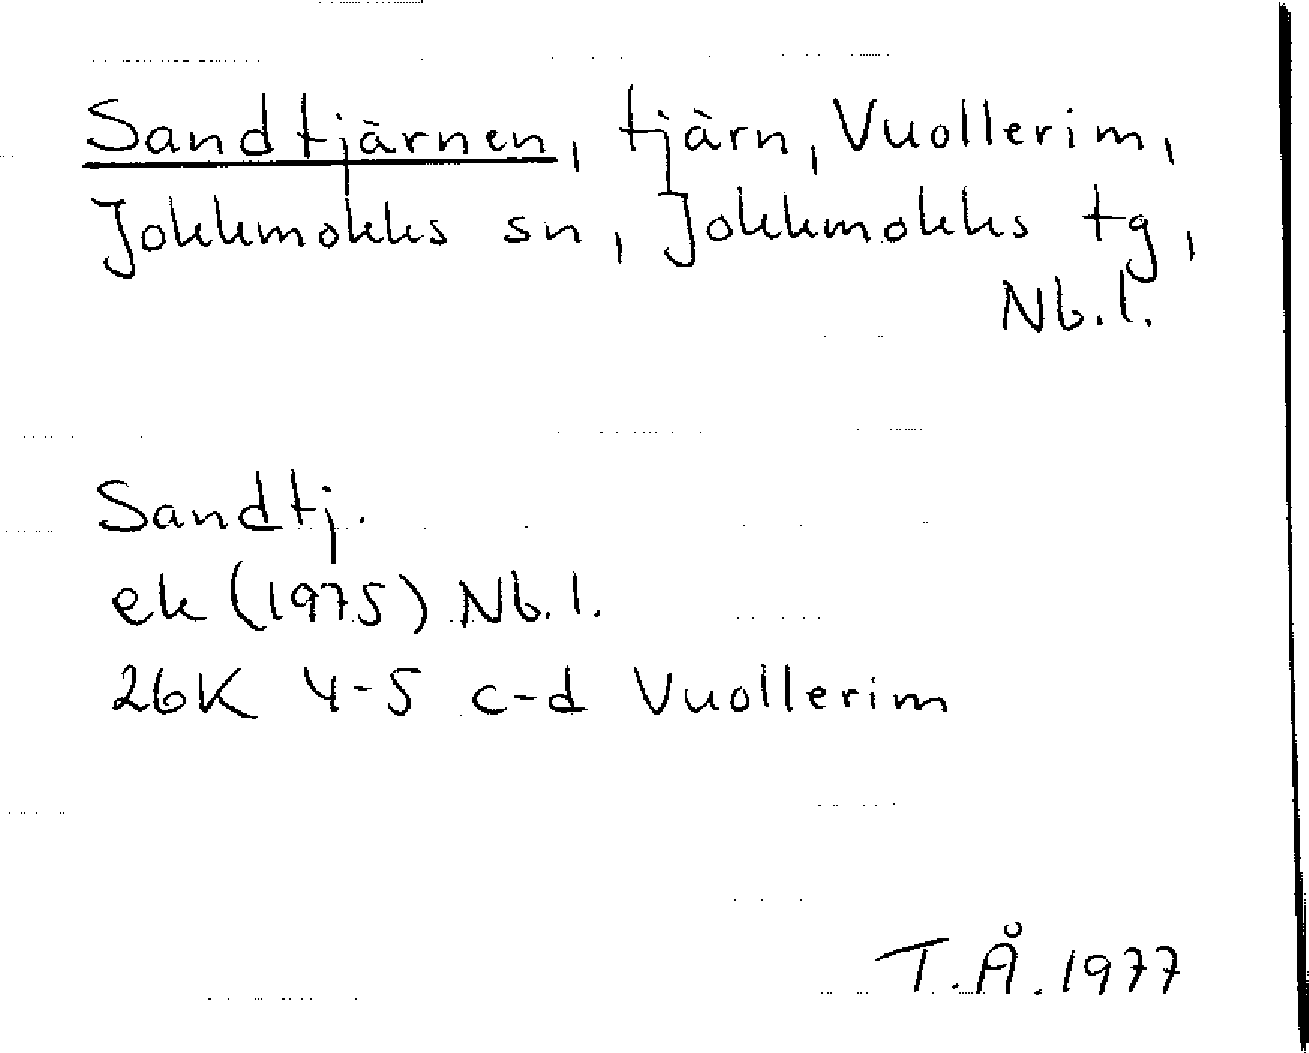 Sandtjärnen, tjärn, Vuollerim,
Jokkmokks sn, Jokkmokks tg,
Nb.l.
Sandtj.
ek (1975) Nb.l.
26K 4-5 c-d Vuollerim
T.Å. 1977